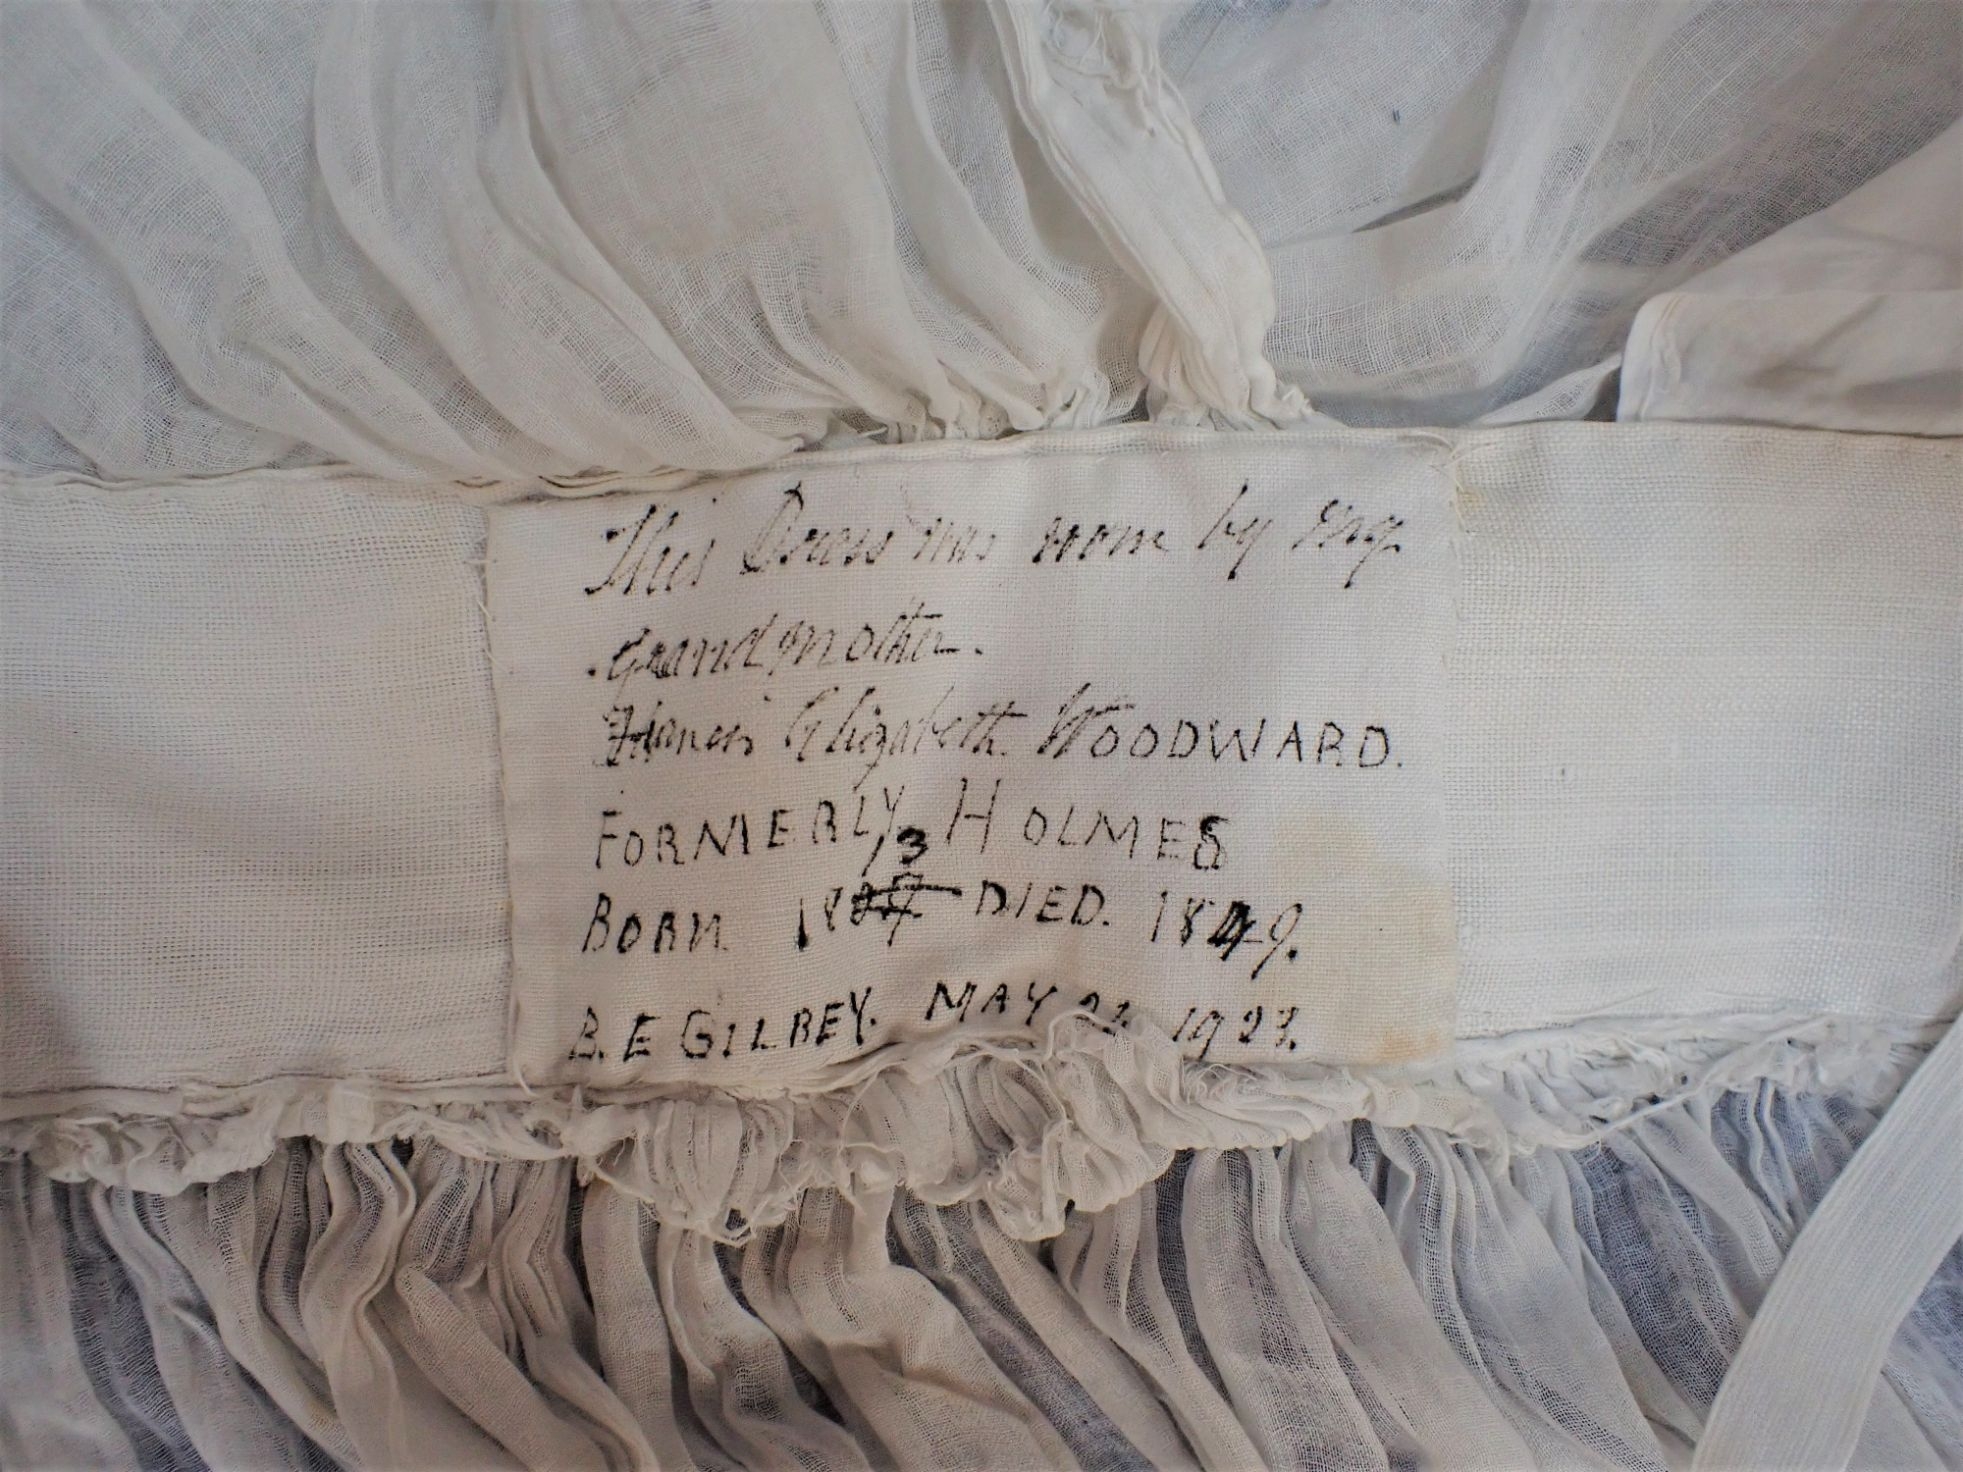 This Dress was worn by my
grandmother.
Francis Elizabeth WOODWARD.
FORMERLY HOLMES
13
BORN 1807 DIED. 1849.
B. E GILBEY. MAY 1923.